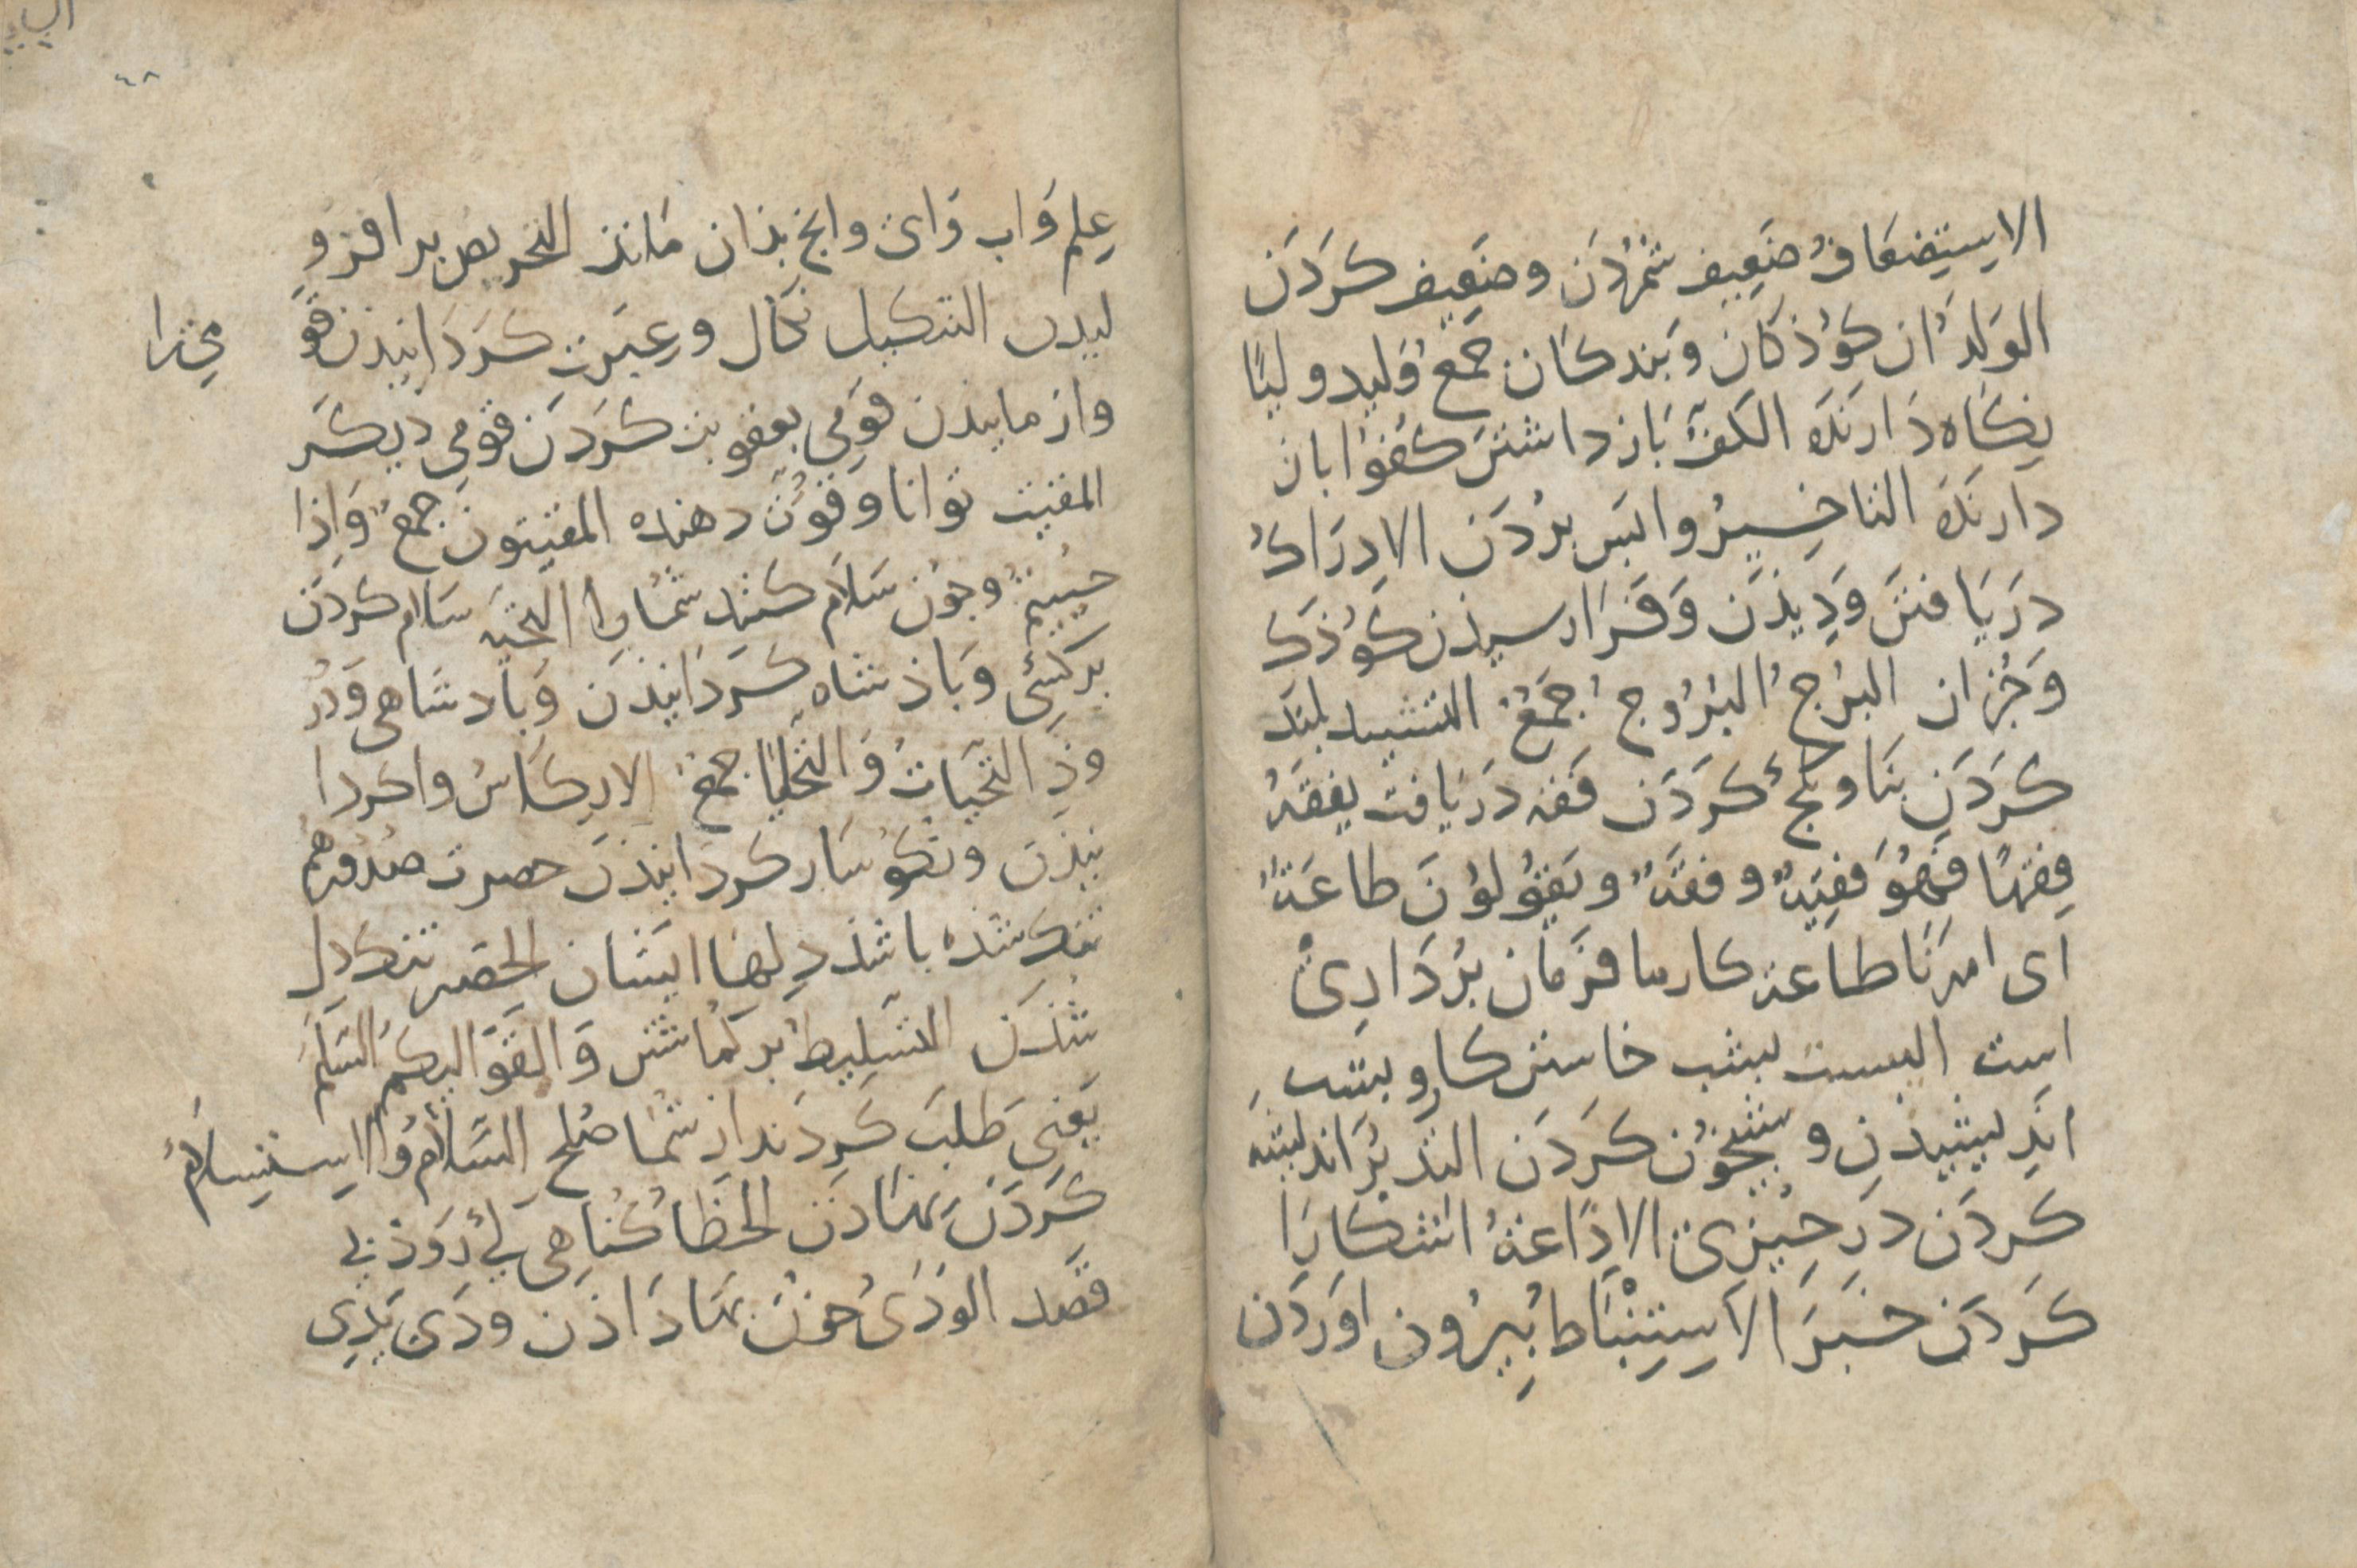 الاِستِضعَافُ ضَعِيف شمُردَن وضَعِيف كَردَن
الوَلدَان كوُذكَان وَبَندكَان جَمعُ وَليد وليًا
نِكَاه دَارنَكَ الكَفُّ بَاز داشتن كفُوا باز
دارنَكَ التاخِيرُ واپَس بُردَن الادِرَاكُ
دَريَافتَن وَدِيذَن وَفَرَا رسيذن كوُذَك
وَجُزان البرُجُ البُرُوجُ جَمعُ التشييد بلند
كَردَنِ بنَا وكج كَردَن فَقه دَريَافت يفقَهُ
فِقهًا فَهُوَ فَقِيهٌ وفقهٌ ويَقُولُونَ طاعَةٌ
اَى امرنَا طاعة كار ما فرَمان بُردَارِىْ
است البيت بشب خاستن كار وبشب
اندِيشيذنِ وشبخوُن كَردَن التدبرُ انديشه
كَردَن در چِيزى الاِذاعةُ اشكارَا
كَردَن خبَرَ الاِستِنْبَاط بِيرُون اوَردَن
٤٨
عِلم وَاب وَاى وانچ بذان مَانذ التحريص بر افزو
ليدن التنكيل نكَال وعِبَرت كَردَانيذن قَو
مى را
وازمايذن قومِى بعقوبت كَردَن قومى ديكَر
المقيت توانا وقوُّت دهنده المقيتون جمعٌ وَاِذا
حيُيتمُ وچون سَلاَم كنند شمَُا را التحيّه سَلام كردَن
بر كسَِى وَپاذشاه كَردَانيذَن وَپادشاهى وَدُر
وذِ التحِّيَاتُ وَالتحَّايَا جمعٌ الاِركَاسُ واكردا
نيذن ونكوُسَار كردَانيذَن حصرت صُدُورهُم
تنك شذه باشذ دِلهَا ايشان الحَصَر تنكدِل
شذَن التسَليط بر كمُاشتن وَالقَوا اليكمُ السَلَمَ
يَعنِى طَلبَ كَردَند از شمَا صُلح السَّلاَمُ وَالاِستِسلاَمُ
كَردَن نهَادَن الخطَا كُنَاهِى كِى رَوَذ بى
قَصد الوَدَىُ خون بهَا دَاذَن ودَى يَدِى